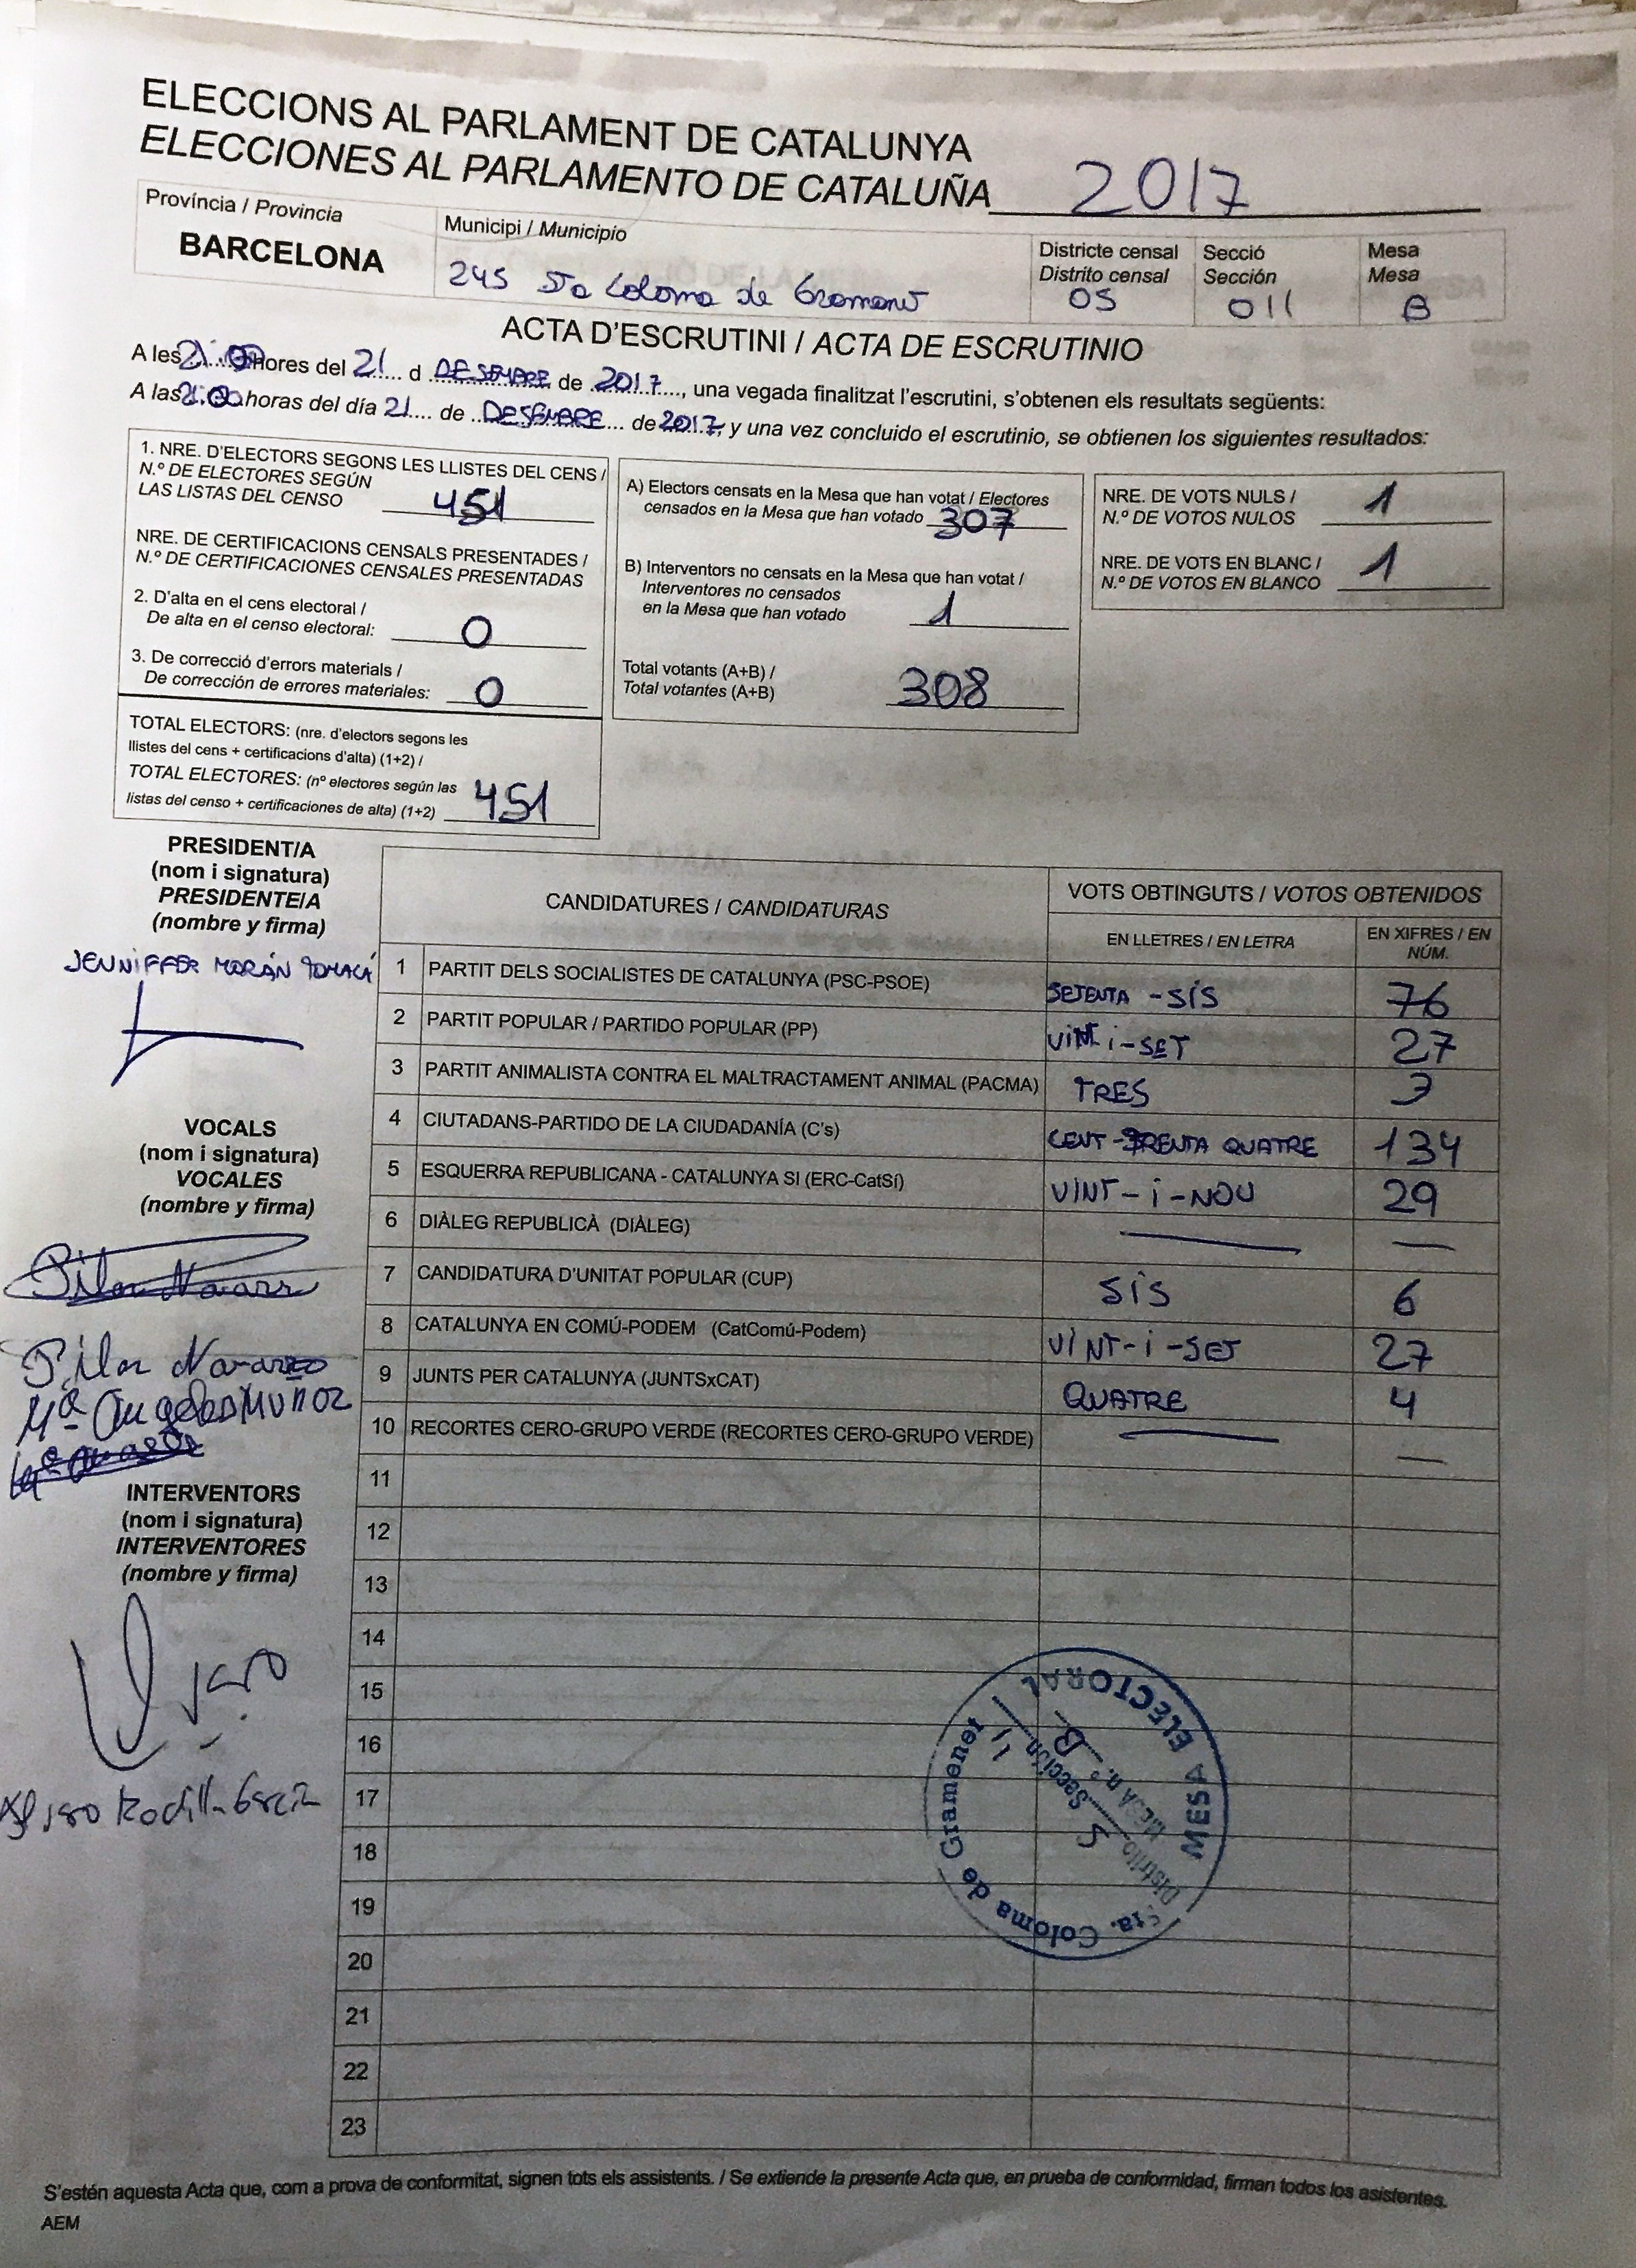 ELECCIONS AL PARLAMENT DE CATALUNYA
ELECCIONES AL PARLAMENTO DE CATALUÑA 2017
Província / Provincia
BARCELONA
Municipi / Municipio
245 Sta Coloma de Gramanet
Districte censal
Distrito censal
05
Secció
Sección
011
Mesa
Mesa
B
ACTA D'ESCRUTINI / ACTA DE ESCRUTINIO
A les 21:00 hores del 21 d DESEMBRE de 2017, una vegada finalitzat l'escrutini, s'obtenen els resultats següents:
A las 21:00 horas del día 21 de DESEMBRE de 2017, y una vez concluido el escrutinio, se obtienen los siguientes resultados:
1. NRE. D'ELECTORS SEGONS LES LLISTES DEL CENS /
N.º DE ELECTORES SEGÚN
LAS LISTAS DEL CENSO 451
NRE. DE CERTIFICACIONS CENSALS PRESENTADES /
N.º DE CERTIFICACIONES CENSALES PRESENTADAS
2. D'alta en el cens electoral /
De alta en el censo electoral: 0
3. De correcció d'errors materials /
De corrección de errores materiales: 0
TOTAL ELECTORS: (nre. d'electors segons les
llistes del cens + certificacions d'alta) (1+2) /
TOTAL ELECTORES: (nº electores según las
listas del censo + certificaciones de alta) (1+2) 451
A) Electors censats en la Mesa que han votat / Electores
censados en la Mesa que han votado 307
B) Interventors no censats en la Mesa que han votat /
Interventores no censados
en la Mesa que han votado 1
Total votants (A+B) /
Total votantes (A+B) 308
NRE. DE VOTS NULS /
N.º DE VOTOS NULOS 1
NRE. DE VOTS EN BLANC /
N.º DE VOTOS EN BLANCO 1
PRESIDENT/A
(nom i signatura)
PRESIDENTE/A
(nombre y firma)
JENNIFFER MORÁN
VOCALS
(nom i signatura)
VOCALES
(nombre y firma)
Pilar Navarr
Pilar Navarro
Mª Angeles MUÑOZ
INTERVENTORS
(nom i signatura)
INTERVENTORES
(nombre y firma)
CANDIDATURES / CANDIDATURAS
VOTS OBTINGUTS / VOTOS OBTENIDOS
EN LLETRES / EN LETRA
EN XIFRES / EN
NÚM.
1 PARTIT DELS SOCIALISTES DE CATALUNYA (PSC-PSOE) SETENTA - SIS 76
2 PARTIT POPULAR / PARTIDO POPULAR (PP) VINT i-SET 27
3 PARTIT ANIMALISTA CONTRA EL MALTRACTAMENT ANIMAL (PACMA) TRES 3
4 CIUTADANS-PARTIDO DE LA CIUDADANÍA (C's) CENT-TRENTA QUATRE 134
5 ESQUERRA REPUBLICANA - CATALUNYA SI (ERC-CatSí) VINT-i-NOU 29
6 DIÀLEG REPUBLICÀ (DIÀLEG) — —
7 CANDIDATURA D'UNITAT POPULAR (CUP) SIS 6
8 CATALUNYA EN COMÚ-PODEM (CatComú-Podem) VINT-i-SET 27
9 JUNTS PER CATALUNYA (JUNTSxCAT) QUATRE 4
10 RECORTES CERO-GRUPO VERDE (RECORTES CERO-GRUPO VERDE) — —
11
12
13
14
15
16
17
18
19
20
21
22
23
MESA ELECTORAL
Distrito 5 Sección 11
MESA n.º B
Sta. Coloma de Gramenet
S'estén aquesta Acta que, com a prova de conformitat, signen tots els assistents. / Se extiende la presente Acta que, en prueba de conformidad, firman todos los asistentes.
AEM